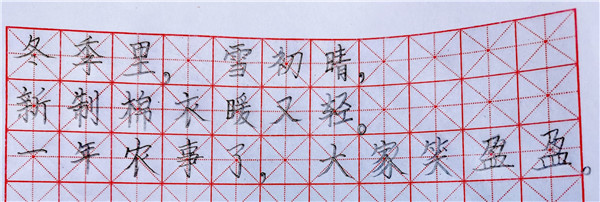 冬季里,雪初晴,
新制棉衣暖又轻。
一年农事了,大家笑盈盈。